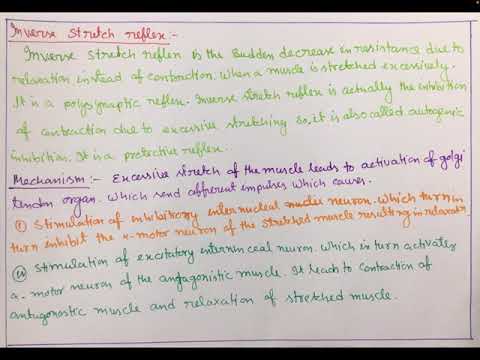 Inverse stretch reflex:-
Inverse stretch reflex is the sudden decrease in resistance due to
relaxation instead of contraction. When a muscle is stretched excessively.
It is a polysynaptic reflex. Inverse stretch reflex is actually the inhibition
of contraction due to excessive stretching so, it is also called autogenic
inhibition. It is a protective reflex.
Mechanism:- Excessive stretch of the muscle leads to activation of golgi
tendon organ. Which send afferent impulses which causes.
(i) Stimulation of inhibitory internuclear neuron. Which turn in
turn inhibit the α-motor neuron of the stretched muscle resulting in relaxation
(ii) Stimulation of excitatory internin ceal neuron. Which in turn activates
α-motor neuron of the antagonistic muscle. It leads to contraction of
antagonostic muscle and relaxation of stretched muscle.